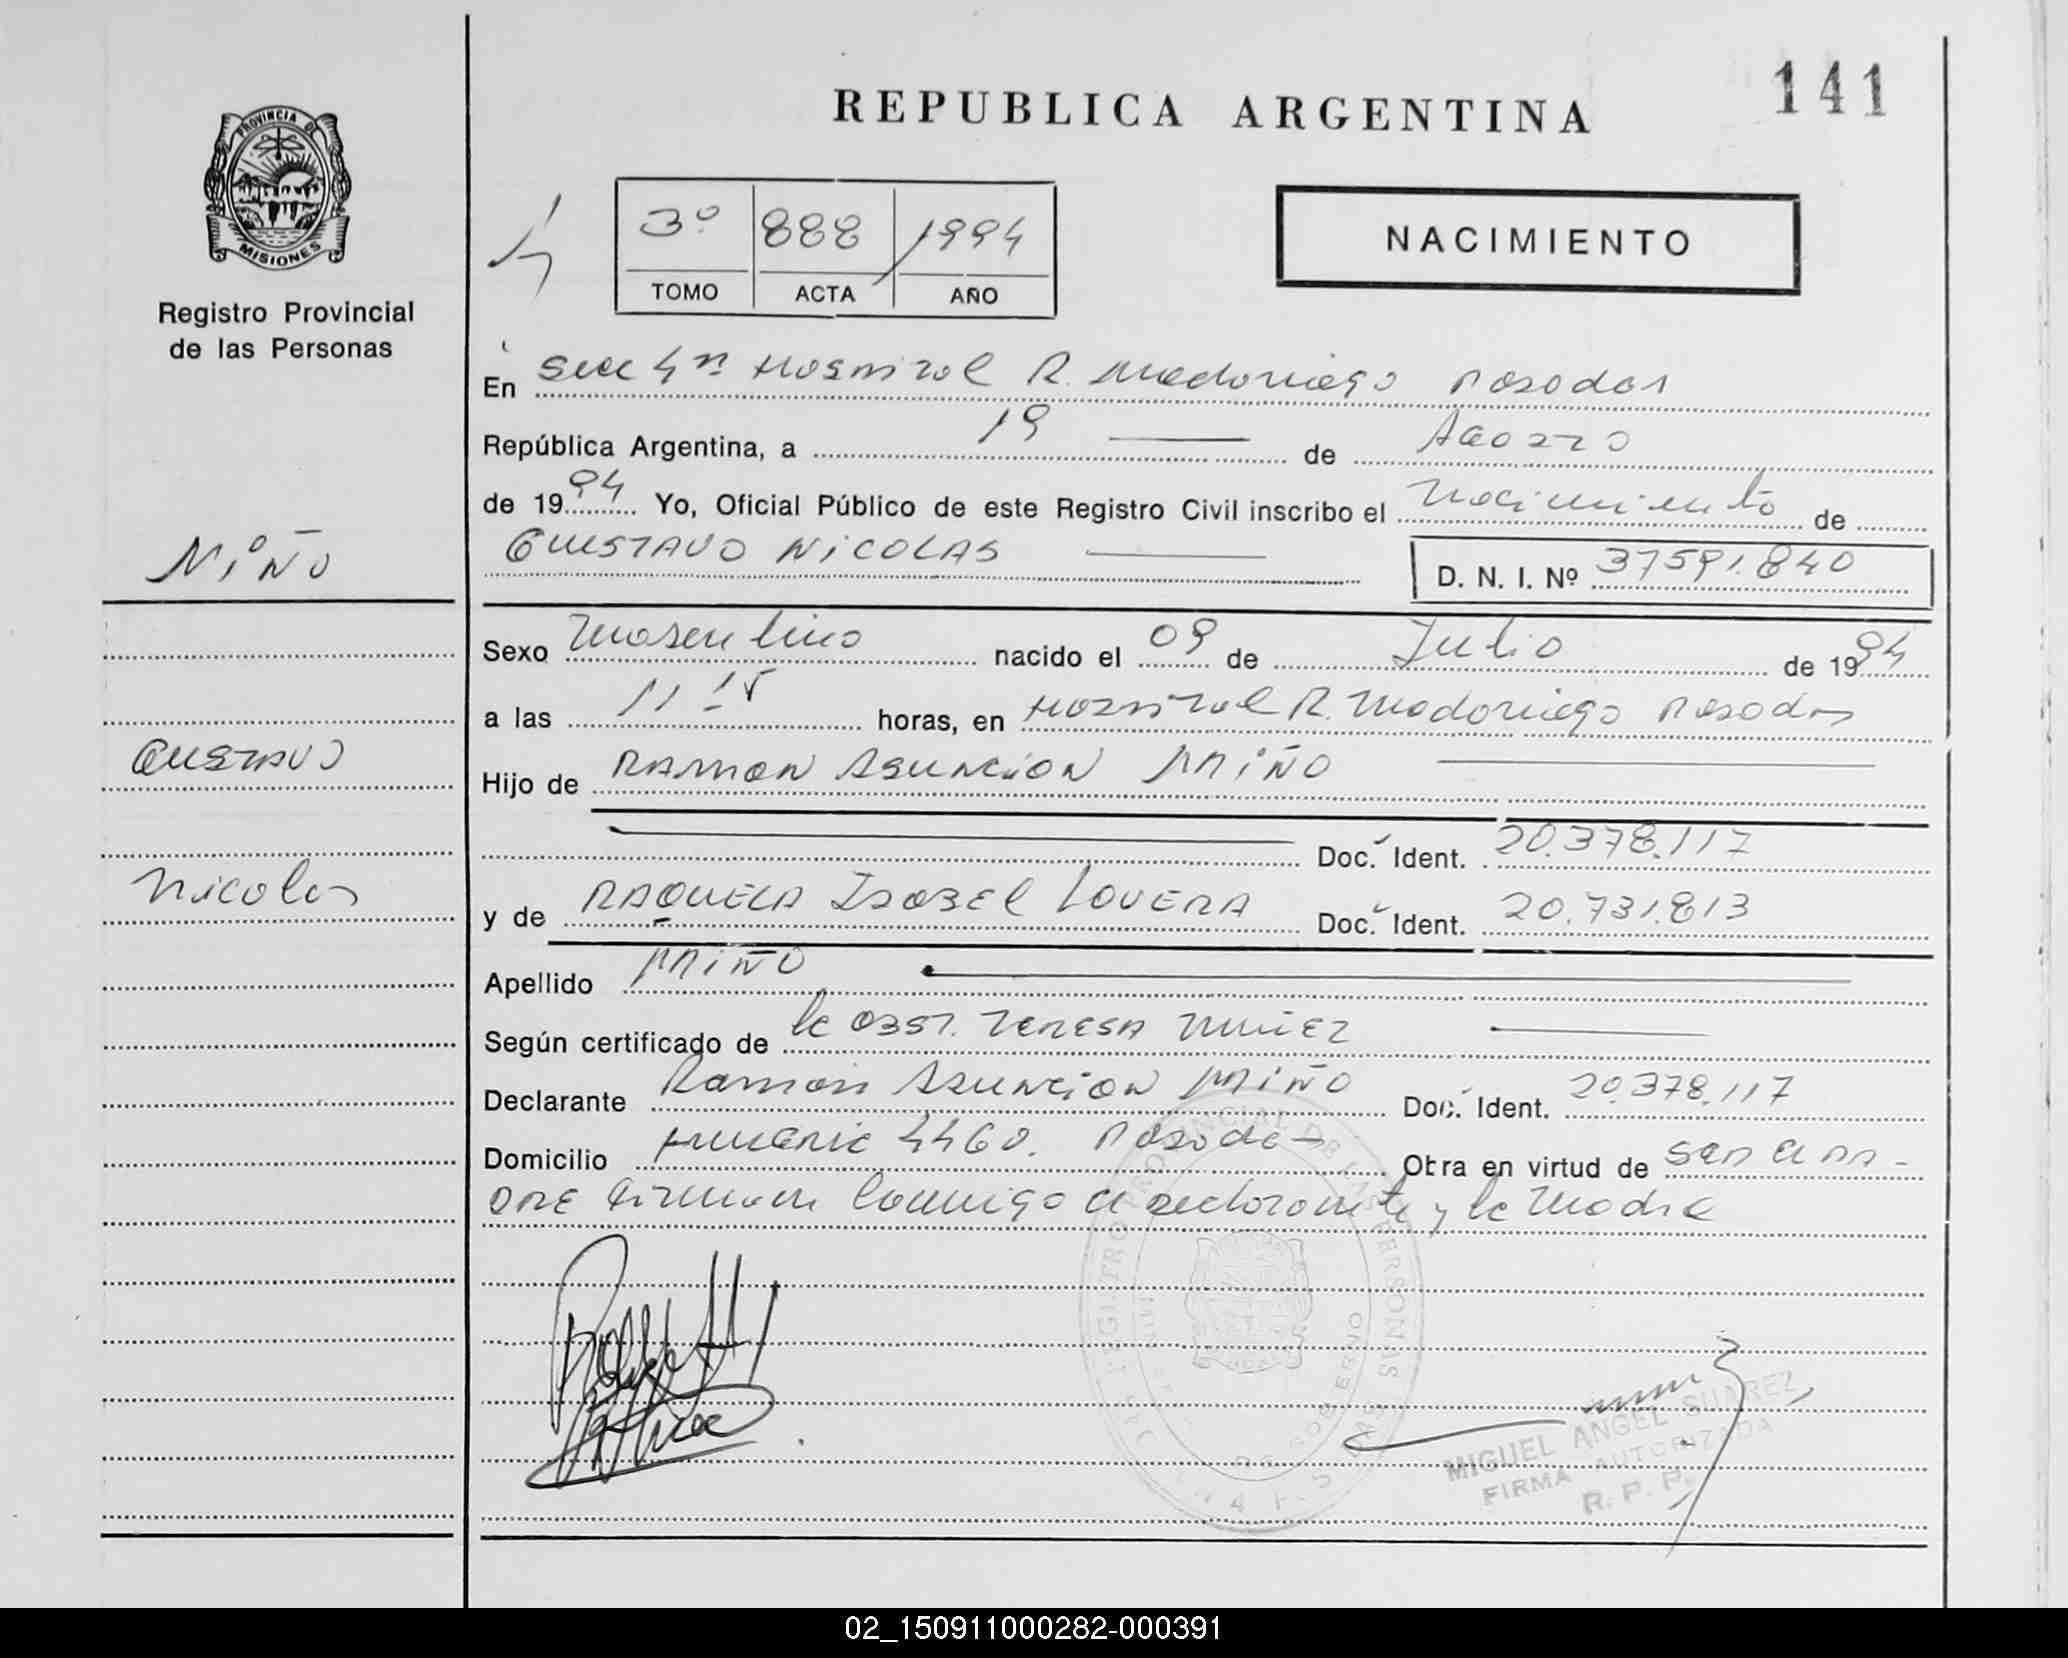 REPUBLICA ARGENTINA
141
PROVINCIA DE
MISIONES
Registro Provincial
de las Personas
3º 888 1994
TOMO ACTA AÑO
NACIMIENTO
En Secc 4ª Hospital R. Madariaga Posadas
República Argentina, a 19 de Agosto
de 1994 Yo, Oficial Público de este Registro Civil inscribo el Nacimiento de
GUSTAVO NICOLAS
D. N. I. Nº 37591.840
MIÑO
Gustavo
Nicolas
Sexo Masculino nacido el 09 de Julio de 1994
a las 11 15 horas, en Hospital R. Madariaga Posadas
Hijo de RAMON ASUNCION MIÑO
Doc. Ident. 20.378.117
y de RAQUELA ISABEL LOVERA Doc. Ident. 20.731.813
Apellido MIÑO
Según certificado de la OBST. TERESA NUÑEZ
Declarante Ramon Asuncion MIÑO Doc. Ident. 20.378.117
Domicilio 4460. Posadas Obra en virtud de SER EL PA-
DRE Firman conmigo el declarante y la Madre
REGISTRO PROVINCIAL DE LAS PERSONAS
MIGUEL ANGEL SUAREZ
FIRMA AUTORIZADA
R. P. P.
02_150911000282-000391